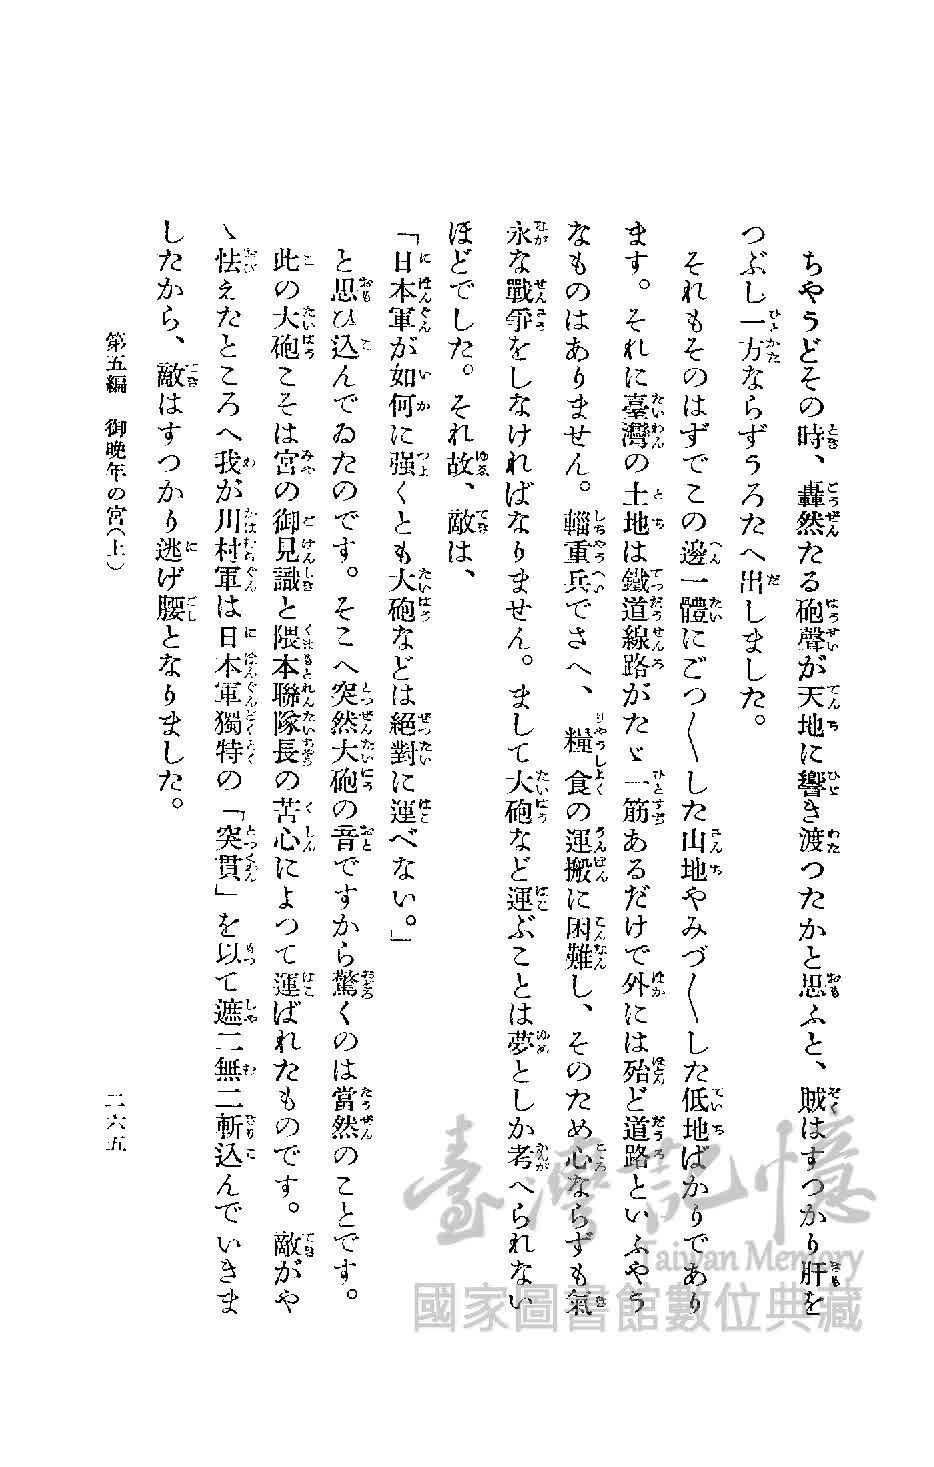 ちやうどその時、轟然たる砲聲が天地に響き渡つたかと思ふと、賊はすつかり肝を
つぶし一方ならずうろたへ出しました。
それもそのはずでこの邊一體にごつ〳〵した山地やみづ〳〵した低地ばかりであり
ます。それに臺灣の土地は鐵道線路がたゞ一筋あるだけで外には殆ど道路といふやう
なものはありません。輜重兵でさへ、糧食の運搬に困難し、そのため心ならずも氣
永な戰爭をしなければなりません。まして大砲など運ぶことは夢としか考へられない
ほどでした。それ故、敵は、
「日本軍が如何に强くとも大砲などは絕對に運べない。」
と思ひ込んでゐたのです。そこへ突然大砲の音ですから驚くのは當然のことです。
此の大砲こそは宮の御見識と隈本聯隊長の苦心によつて運ばれたものです。敵がや
ゝ怯えたところへ我が川村軍は日本軍獨特の「突貫」を以て遮二無二斬込んでいきま
したから、敵はすつかり逃げ腰となりました。
第五編 御晚年の宮(上)
二六五
臺灣記憶
Taiwan Memory
國家圖書館數位典藏